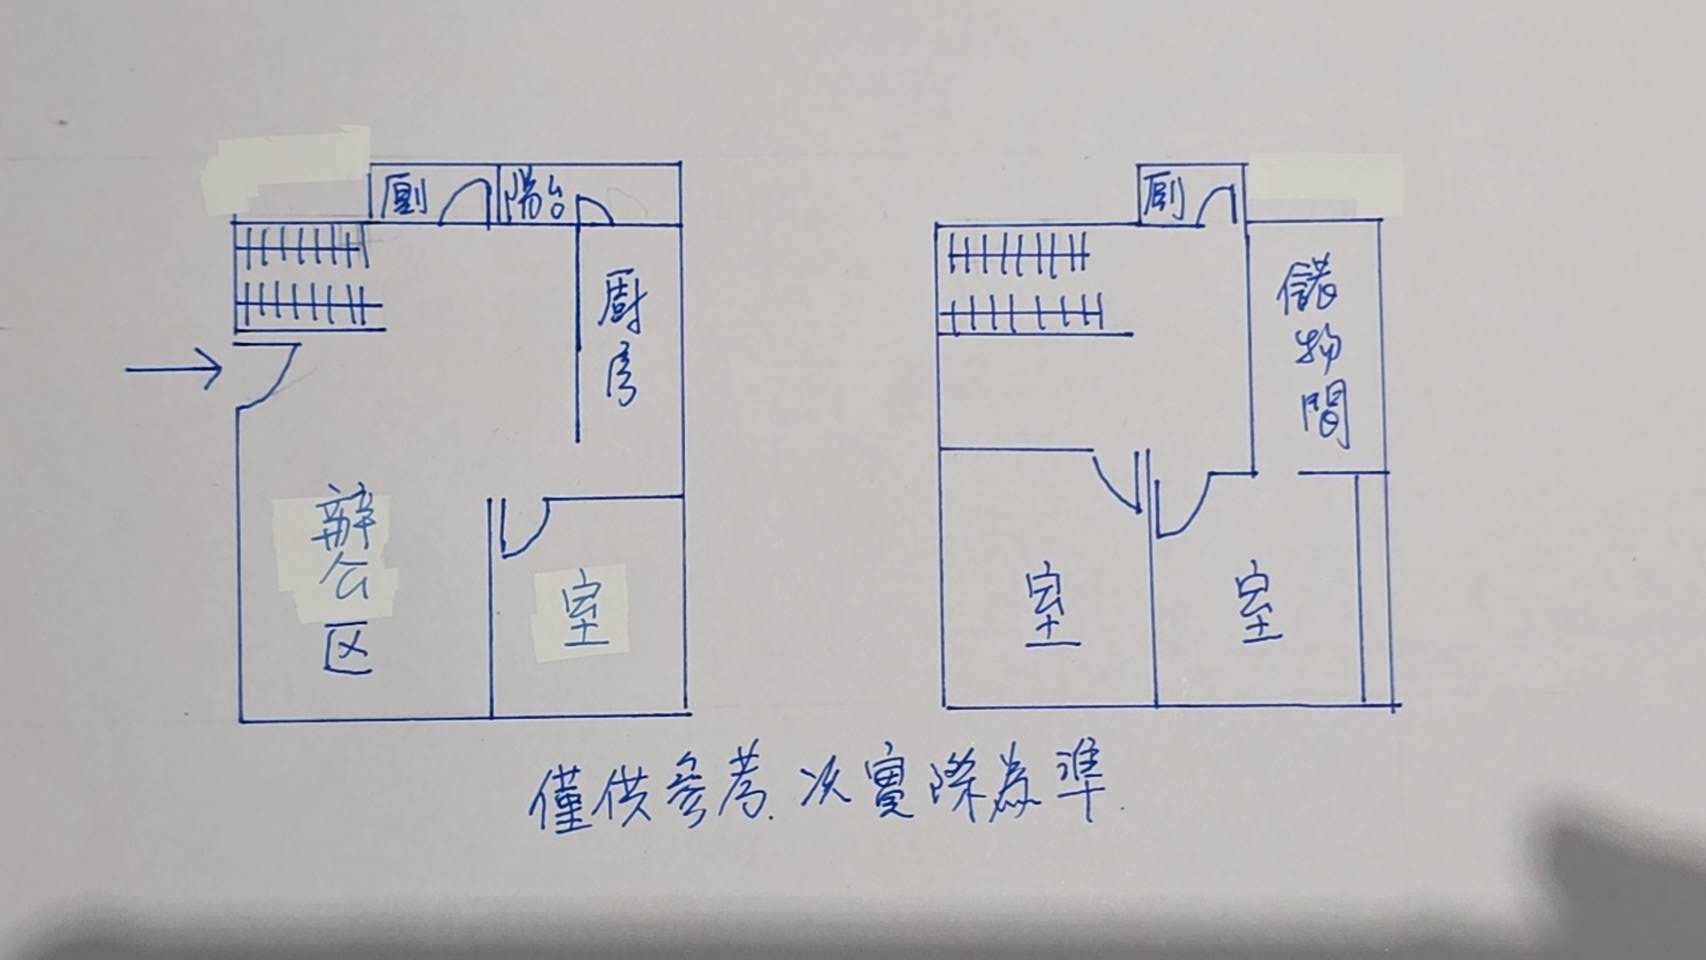 廁
陽台
廚房
辦公区
室
廁
儲物間
室
室
僅供參考.次實際為準.